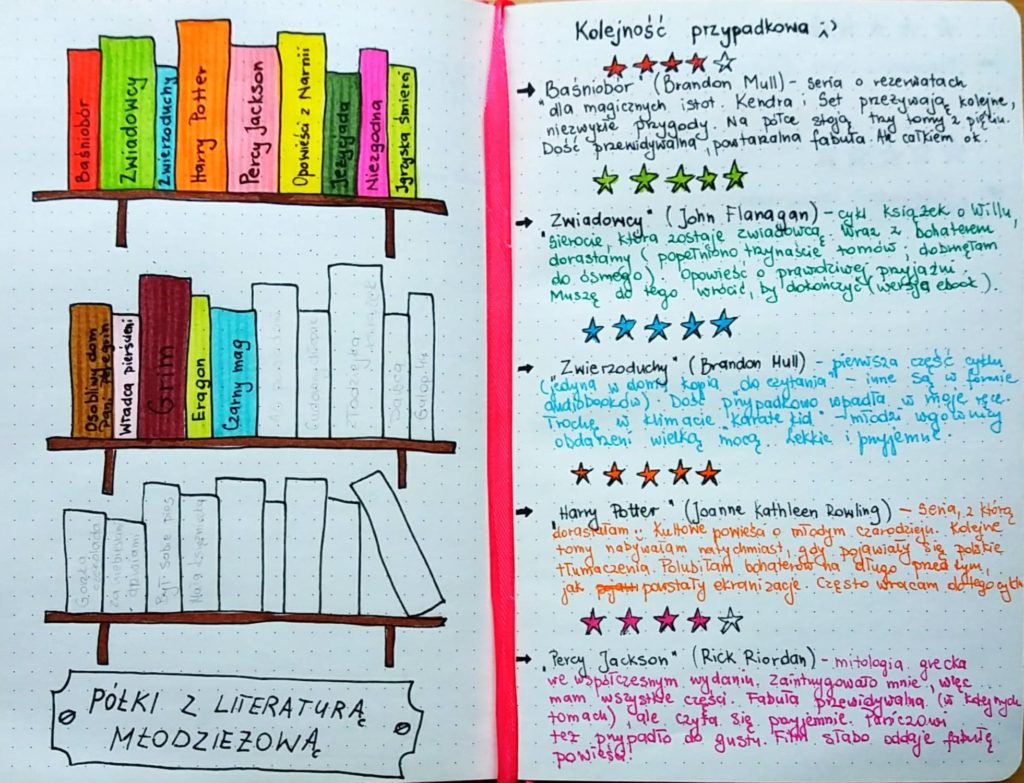 Baśniobór
Zwiadowcy
Zwierzoduchy
Harry Potter
Percy Jackson
Opowieści z Narnii
Jeżycjada
Niezgodna
Igrzyska śmierci
Osobliwy dom
Pani Peregrin
Władca pierścieni
Grim
Eragon
Czarny mag
Gorzka
czekolada
Za niebieskimi
drzwiami
Był sobie pies
PÓŁKI Z LITERATURĄ
MŁODZIEŻOWĄ
Kolejność przypadkowa ;)
"Baśniobór" (Brandon Mull) – seria o rezerwatach
dla magicznych istot. Kendra i Set przeżywają kolejne,
niezwykłe przygody. Na półce stoją trzy tomy z pięciu.
Dość przewidywalna, powtarzalna fabuła. Ale całkiem ok.
"Zwiadowcy" (John Flanagan) – cykl książek o Willu,
sierocie, która zostaje zwiadowcą. Wraz z bohaterem
dorastamy (popełniono trzynaście tomów; dobrnęłam
do ósmego). Opowieść o prawdziwej przyjaźni.
Muszę do tego wrócić, by dokończyć (wersja ebook).
"Zwierzoduchy" (Brandon Mull) – pierwsza część cyklu
(jedyna w domu kopia "do czytania" – inne są w formie
audiobooków). Dość przypadkowo wpadła w moje ręce.
Trochę w klimacie "Karate kid" – młodzi wojownicy
obdarzeni wielką "mocą". Lekkie i przyjemne.
"Harry Potter" (Joanne Kathleen Rowling) – seria, z którą
dorastałam :) Kultowe powieści o młodym czarodzieju. Kolejne
tomy nabywałam natychmiast, gdy pojawiały się polskie
tłumaczenia. Polubiłam bohaterów na długo przed tym,
jak powstały ekranizacje. Często wracam do tego cyklu
"Percy Jackson" (Rick Riordan) – mitologia grecka
we współczesnym wydaniu. Zaintrygowało mnie, więc
mam wszystkie części. Fabuła przewidywalna (w kolejnych
tomach), ale czyta się przyjemnie.
też przypadło do gustu. Film słabo oddaje fabułę
powieści.